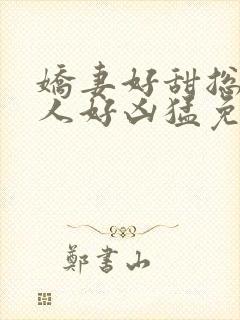 嬌妻好甜総
人好凶猛免
鄭書山